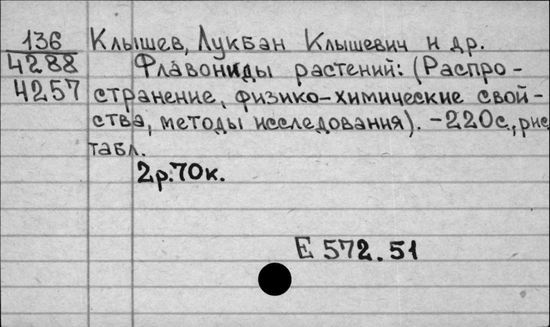 136 Клышев, Лукбан Клышевич и др.
4288 Флавониды растений: (Распро-
4257 странение, физико-химические свой-
ства, методы исследования). -220с., рис,
табл.
2р.70к.
Е 572.51